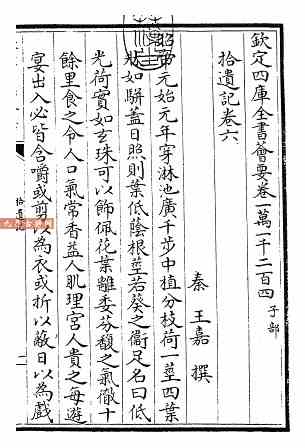 欽定四庫全書薈要卷一萬一千二百四 子部
拾遺記卷六
秦 王嘉 撰
昭帝元始元年穿淋池廣千步中植分枝荷一莖四葉
狀如駢蓋日照則葉低蔭根莖若葵之衛足名曰低
光荷實如玄珠可以飾佩花葉雖萎芬馥之氣徹十
餘里食之令人口氣常香益人肌理宮人貴之每遊
宴出入必皆含嚼或剪以為衣或折以蔽日以為戲
拾遺記